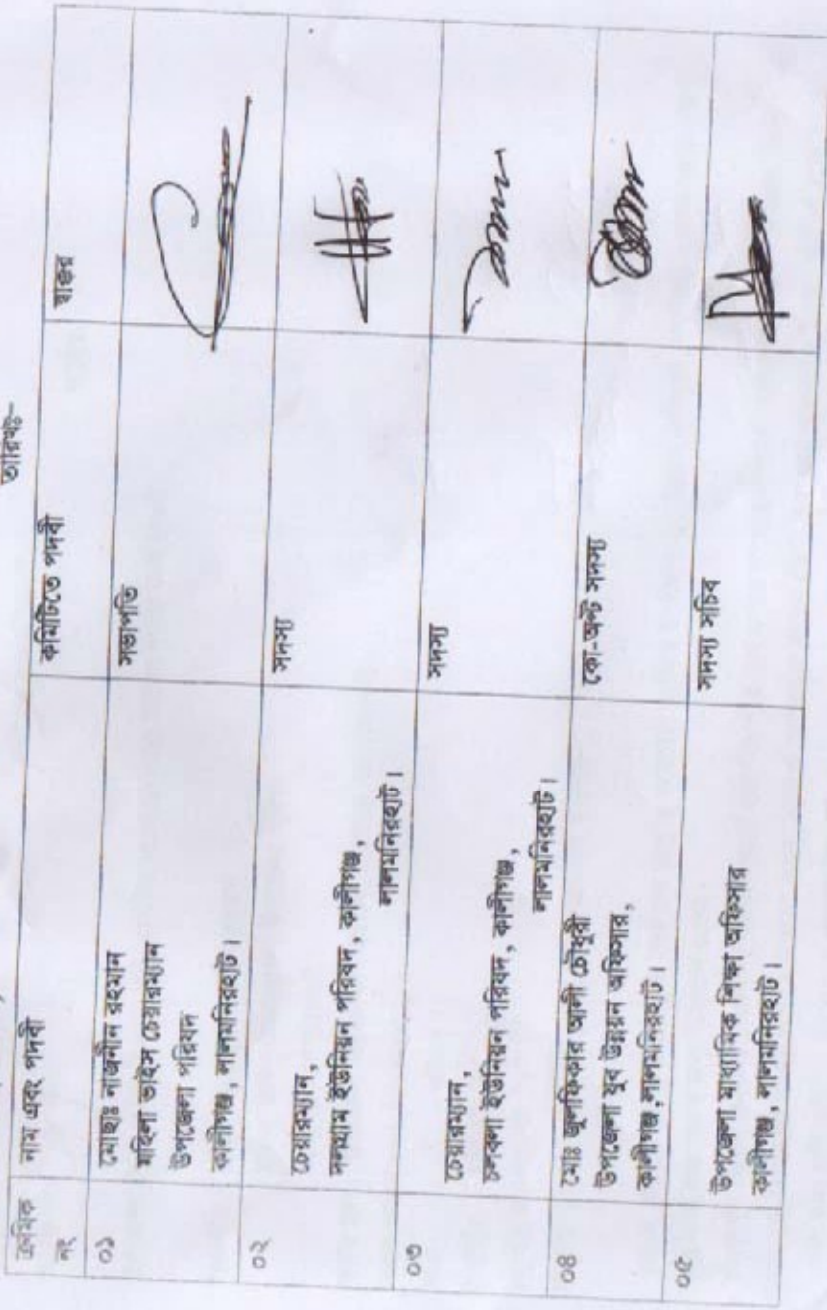 তারিখঃ-
ক্রমিক নং
নাম এবং পদবী
কমিটিতে পদবী
স্বাক্ষর
০১
মোছাঃ নাজনীন রহমান
মহিলা ভাইস চেয়ারম্যান
উপজেলা পরিষদ
কালীগঞ্জ, লালমনিরহাট।
সভাপতি
০২
চেয়ারম্যান,
দলগ্রাম ইউনিয়ন পরিষদ, কালীগঞ্জ,
লালমনিরহাট।
সদস্য
০৩
চেয়ারম্যান,
চলবলা ইউনিয়ন পরিষদ, কালীগঞ্জ,
লালমনিরহাট।
সদস্য
০৪
মোঃ জুলফিকার আলী চৌধুরী
উপজেলা যুব উন্নয়ন অফিসার,
কালীগঞ্জ,লালমনিরহাট।
কো-অপ্ট সদস্য
০৫
উপজেলা মাধ্যমিক শিক্ষা অফিসার
কালীগঞ্জ, লালমনিরহাট।
সদস্য সচিব